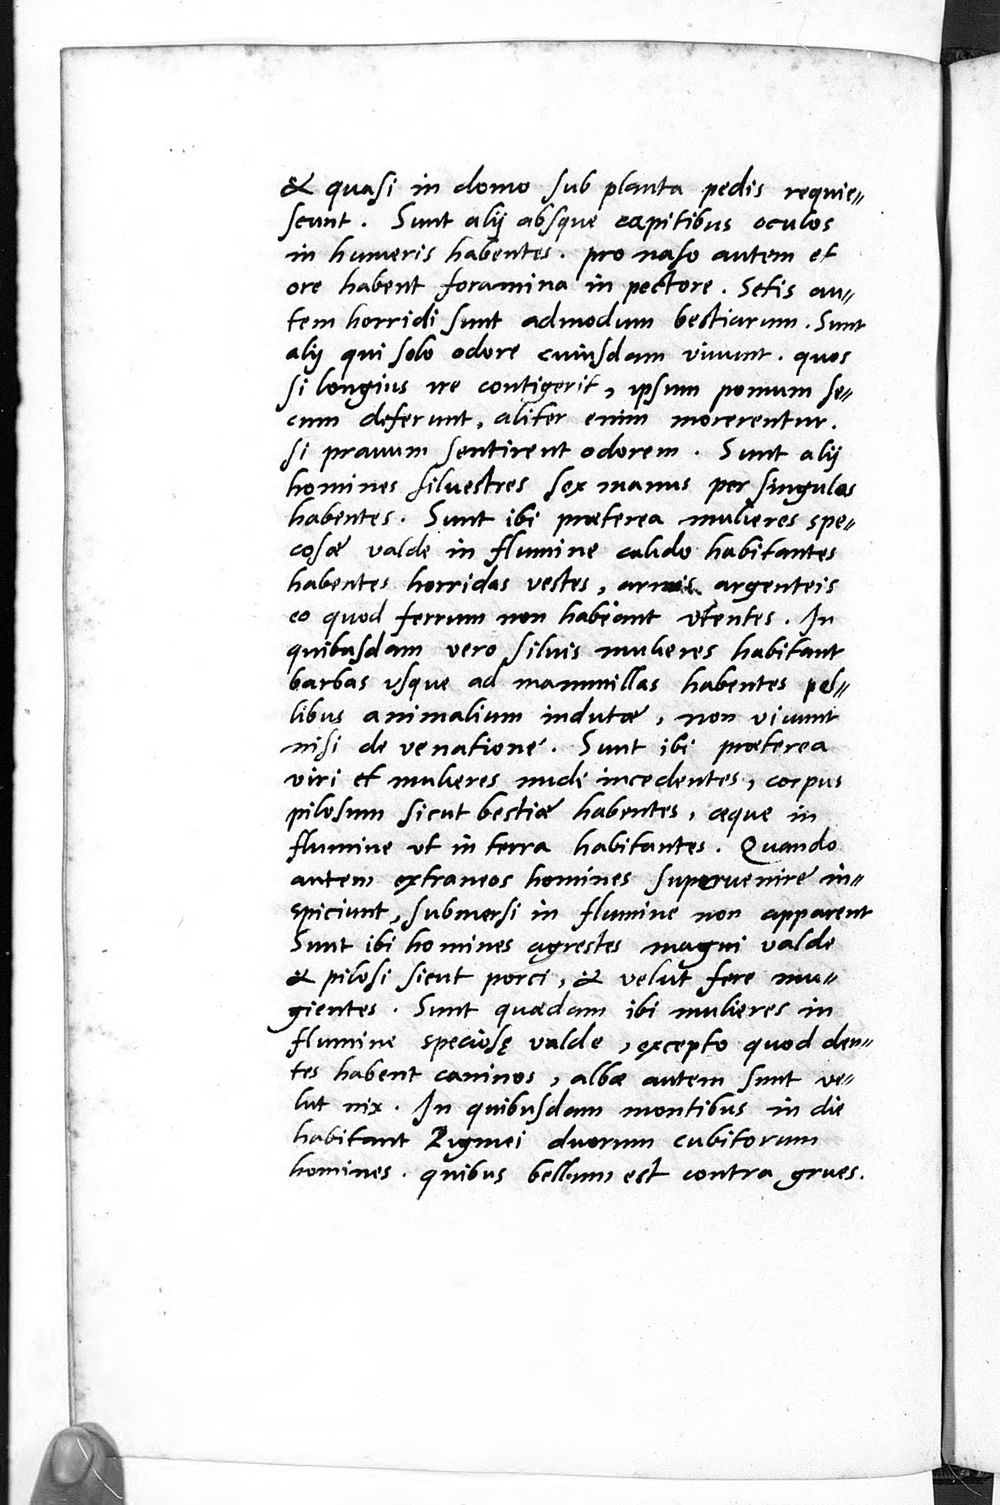 & quasi in domo sub planta pedis requie=
scunt. Sunt alij absque capitibus oculos
in humeris habentes. pro naso autem et
ore habent foramina in pectore. Setis au=
tem horridi sunt admodum bestiarum. Sunt
alij qui solo odore cuiusdam viuunt. quos
si longius ire contigerit, ipsum pomum se=
cum deferunt, aliter enim morerentur.
si prauum sentirent odorem. Sunt alij
homines siluestres sex manus per singulas
habentes. Sunt ibi præterea mulieres spe=
cosæ valde in flumine calido habitantes
habentes horridas vestes, armis argenteis
eo quod ferrum non habeant vtentes. In
quibusdam vero siluis mulieres habitant
barbas vsque ad mammillas habentes pel=
libus animalium indutæ, non viuunt
nisi de venatione. Sunt ibi præterea
viri et mulieres nudi incedentes, corpus
pilosum sicut bestiæ habentes, æque in
flumine vt in terra habitantes. Quando
autem extraneos homines superuenire in=
spiciunt, submersi in flumine non apparent
Sunt ibi homines agrestes magni valde
& pilosi sicut porci, & velut fere mu=
gientes. Sunt quædam ibi mulieres in
flumine speciosę valde, excepto quod den=
tes habent caninos, albæ autem sunt ve=
lut nix. In quibusdam montibus in die
habitant Pigmei duorum cubitorum
homines. quibus bellum est contra grues.